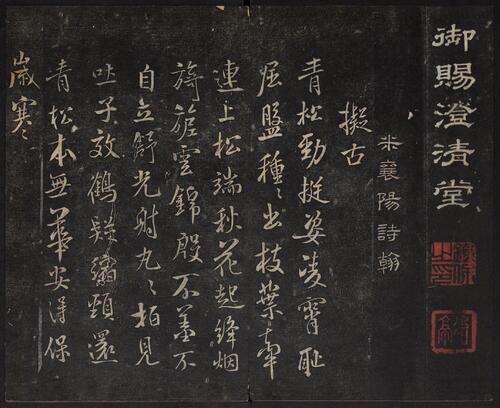 御賜澄清堂
米襄陽詩翰
擬古
青松勁挺姿凌霄恥
屈盤種〻出枝葉牽
連上松端秋花起絳烟
旖旎雲錦殷不羞不
自立舒光射丸〻柏見
吐子效鶴疑縮頸還
青松本無華安得保
歲寒